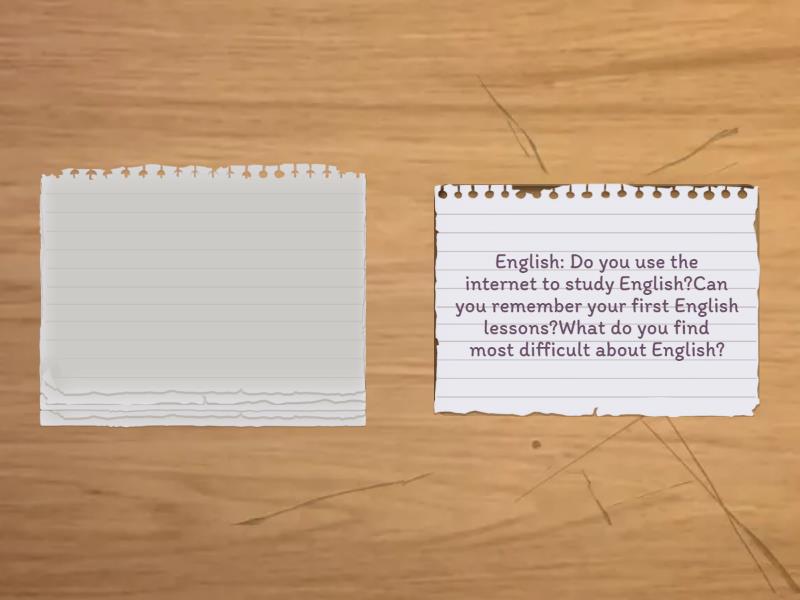 English: Do you use the
internet to study English?Can
you remember your first English
lessons?What do you find
most difficult about English?